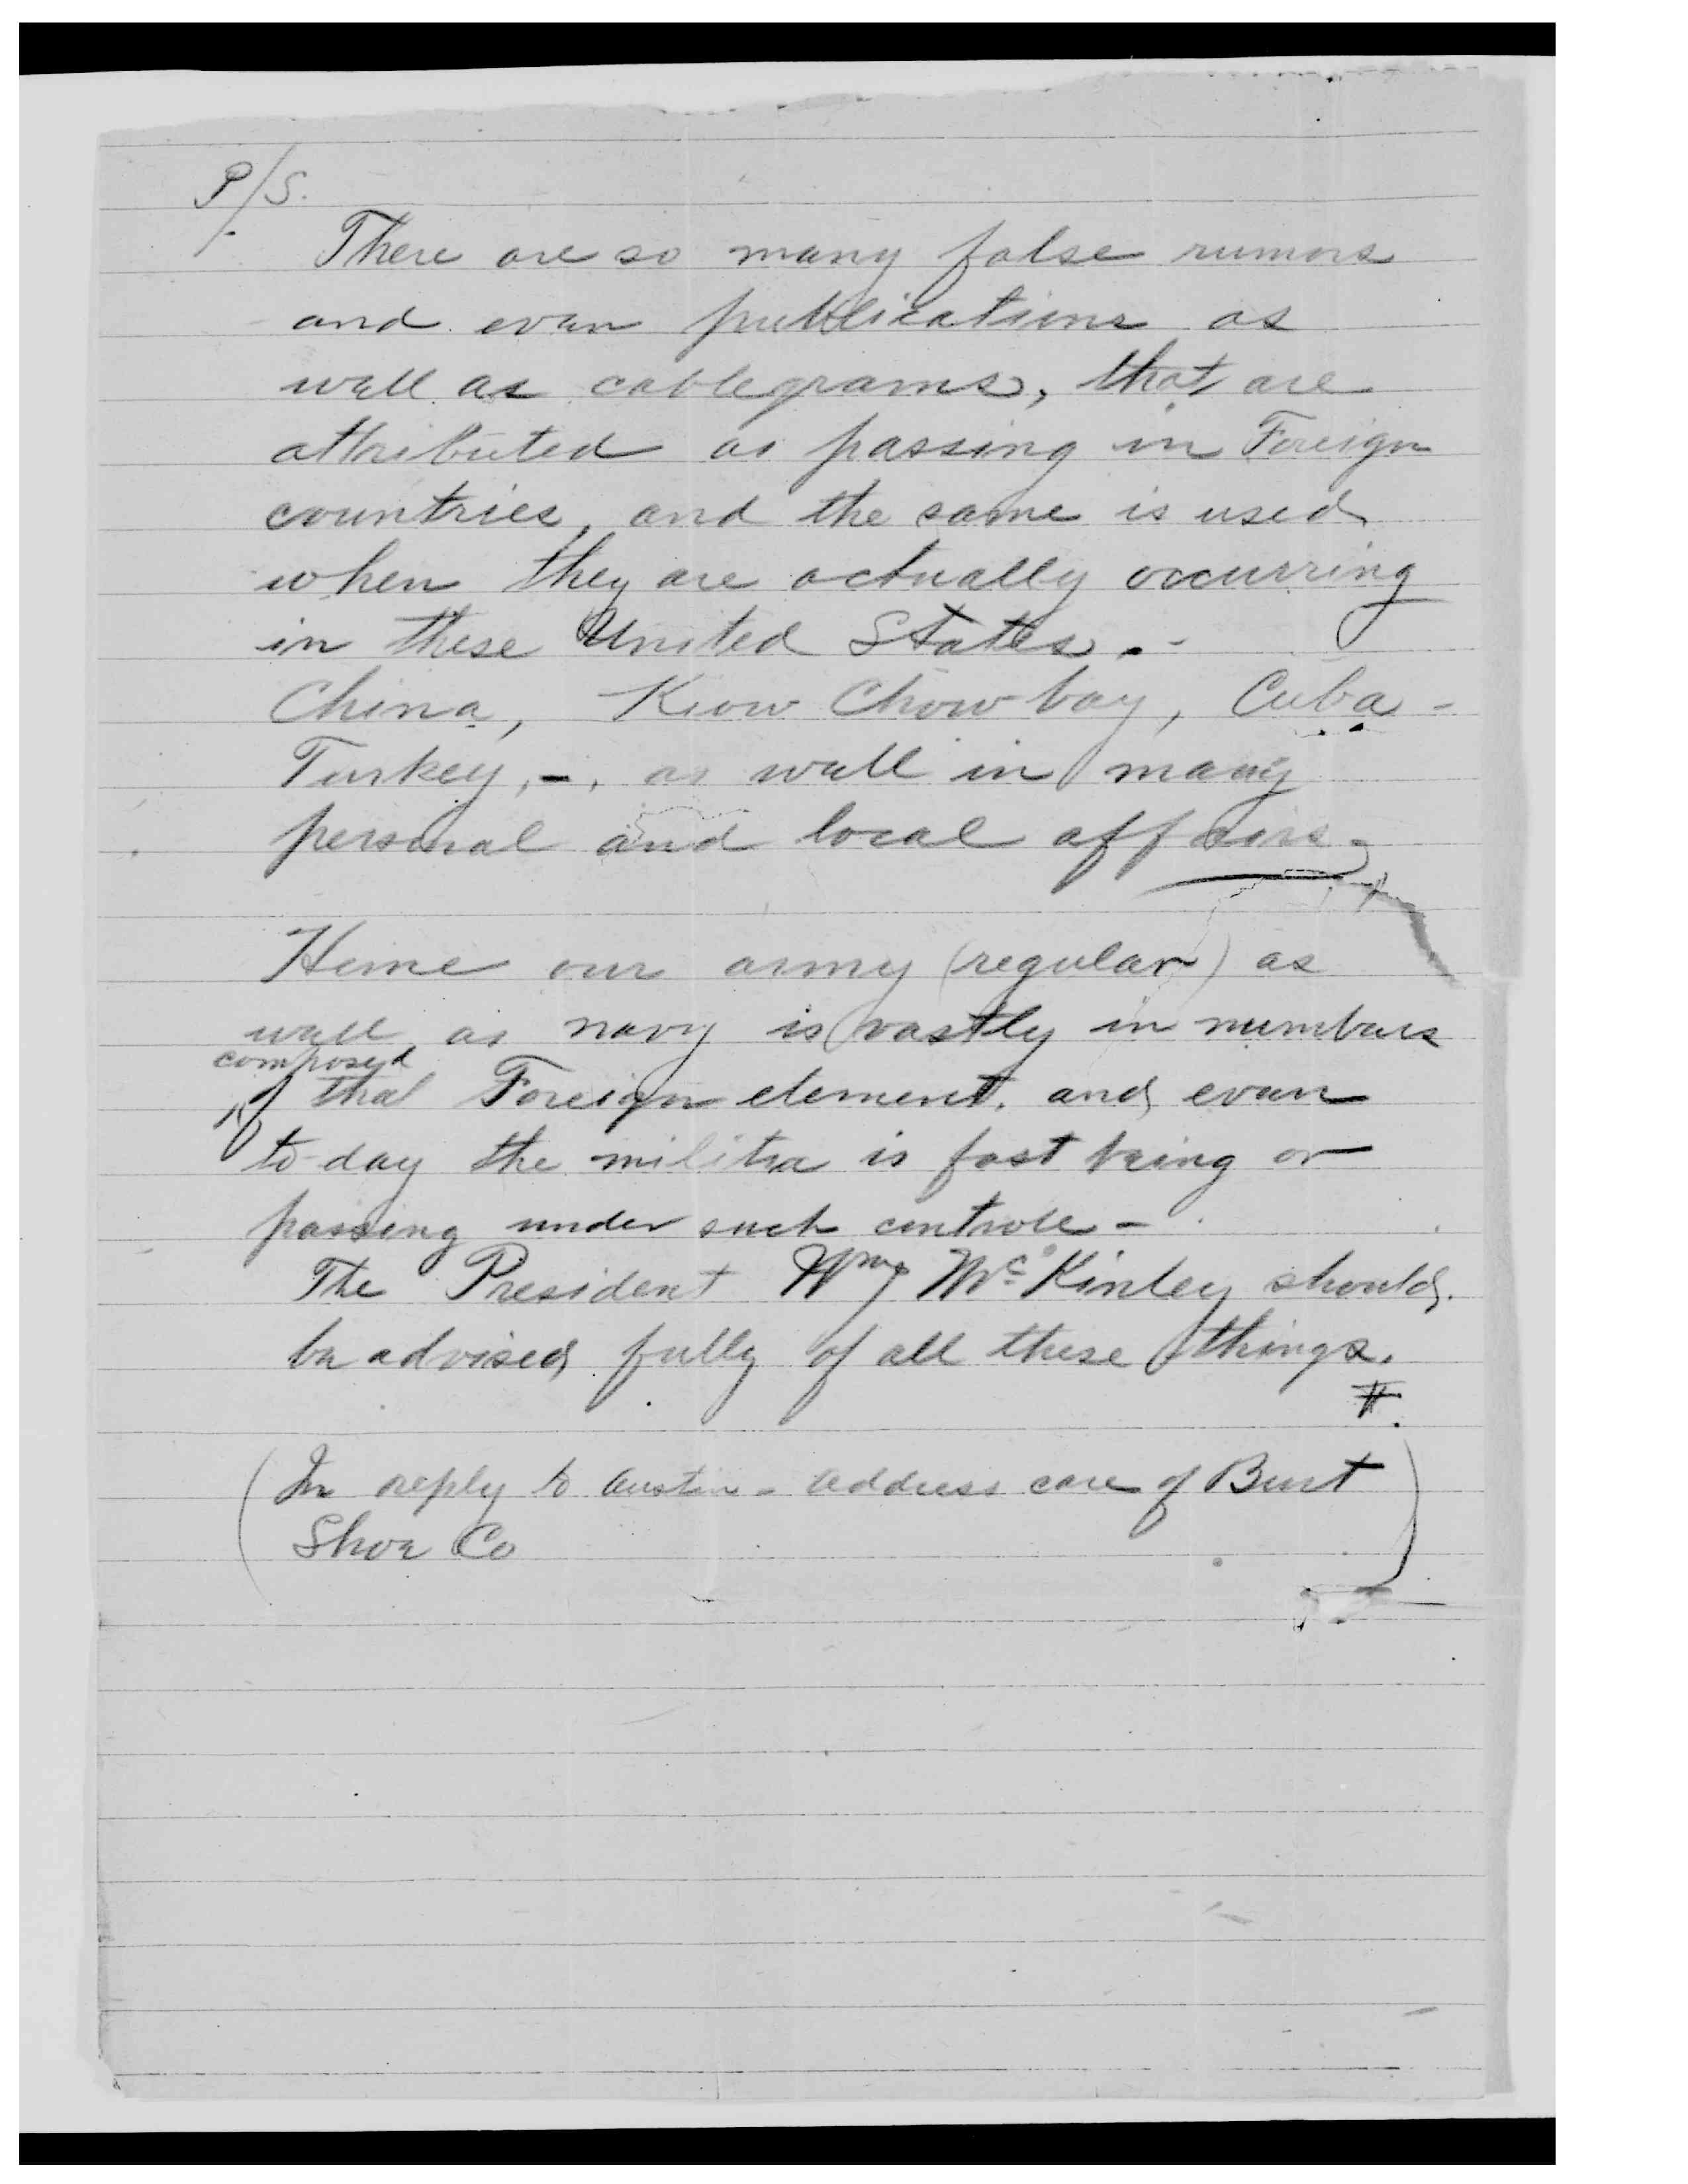 P/S.
There are so many false rumors
and even publications as
well as cablegrams, that are
attributed as passing in Foreign
countries, and the same is used
when they are actually occurring
in these United States. -
China, Kiow Chow bay, Cuba -
Turkey, -, as well in many
personal and local affairs -
Hence our army (regular) as
well as navy is vastly in numbers
composed
of that Foreign element. and even
to-day the militia is fast being or
passing under such controle -
The President Wm McKinley should
be advised fully of all these things.
(In reply to Austin - address care of Burt
Shoe Co)